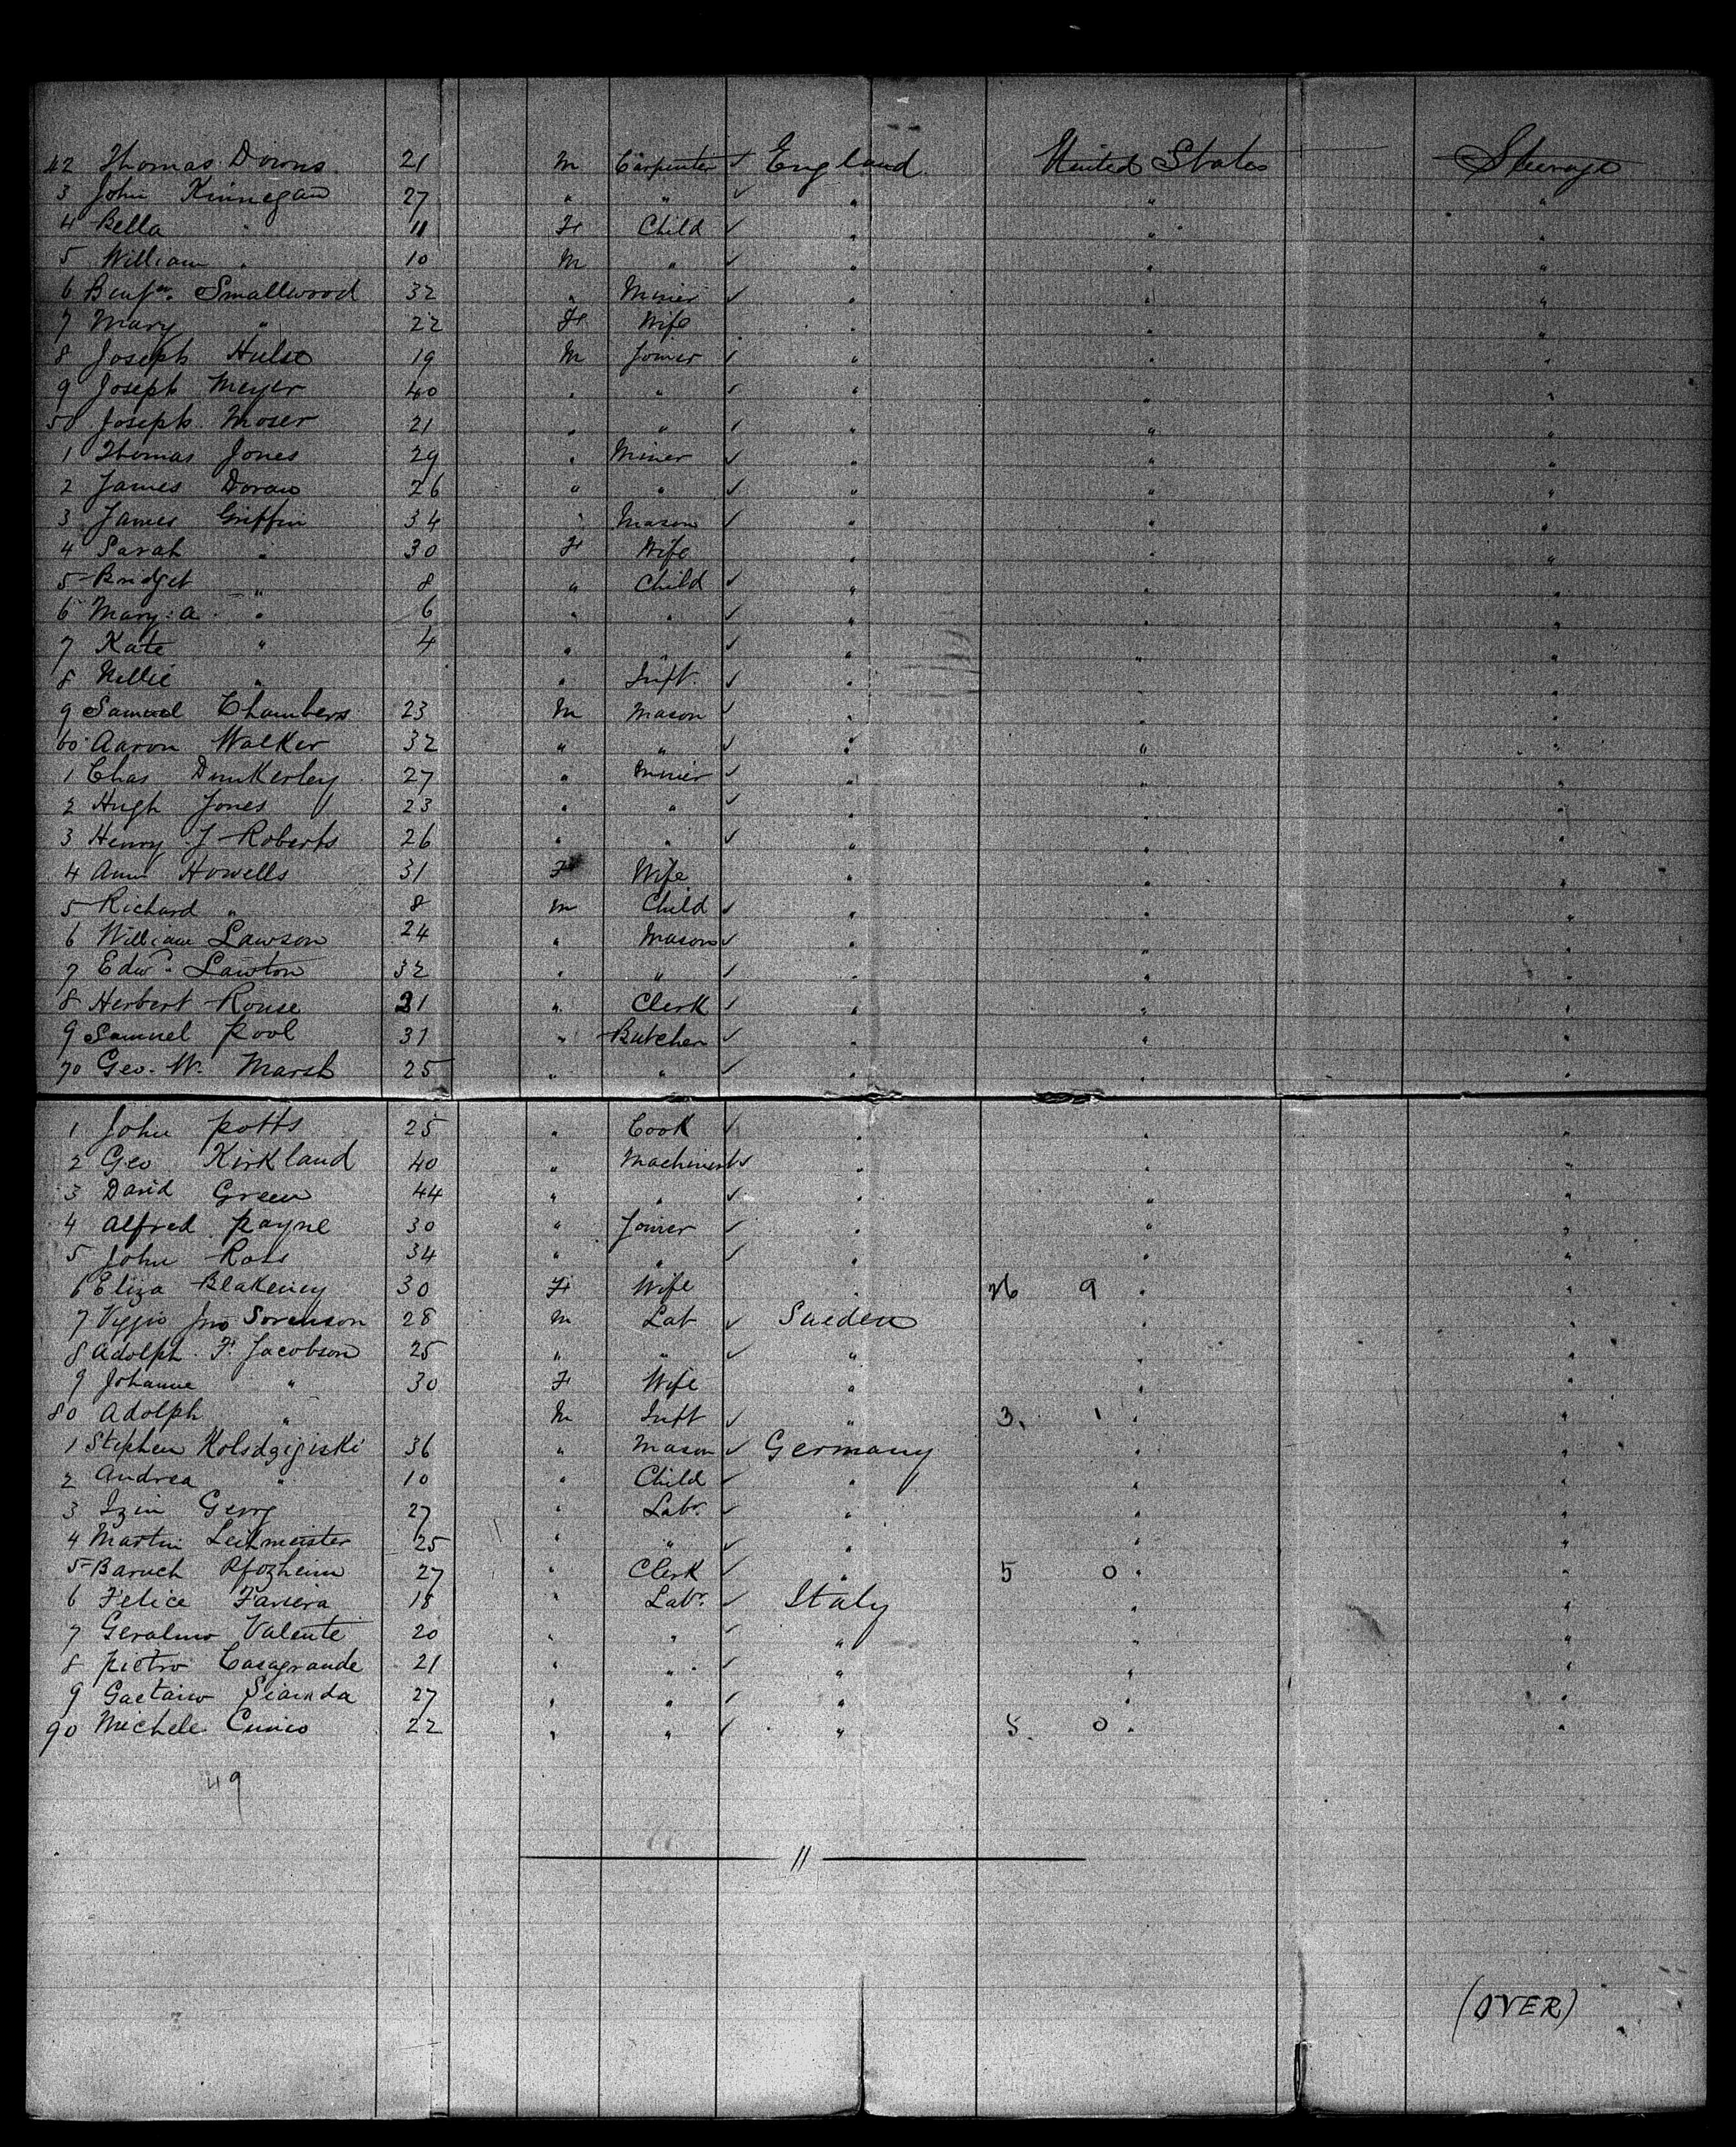 42 Thomas Downs 21 M Carpenter ✓ England United States Steerage
3 John Kinnegan 27 " " ✓ " " "
4 Bella " 11 F Child ✓ " " "
5 William " 10 M " ✓ " " "
6 Benjn. Smallwood 32 " Miner ✓ " " "
7 Mary " 22 F Wife " " "
8 Joseph Hulse 19 M Joiner ✓ " " "
9 Joseph Meyer 40 " " ✓ " " "
50 Joseph Moser 21 " " ✓ " " "
1 Thomas Jones 29 " Miner ✓ " " "
2 James Doran 26 " " ✓ " " "
3 James Griffin 34 " Mason ✓ " " "
4 Sarah " 30 F Wife " " "
5 Bridget " 8 " Child ✓ " " "
6 Mary A. " 6 " " ✓ " " "
7 Kate " 4 " " ✓ " " "
8 Nellie " " Inft. ✓ " " "
9 Samuel Chambers 23 M Mason ✓ " " "
60 Aaron Walker 32 " " ✓ " " "
1 Chas Dunkerley 27 " Miner ✓ " " "
2 Hugh Jones 23 " " ✓ " " "
3 Henry J Roberts 26 " " ✓ " " "
4 Ann Howells 31 F Wife " " "
5 Richard " 8 M Child ✓ " " "
6 William Lawson 24 " Mason ✓ " " "
7 Edwd. Lawton 32 " " ✓ " " "
8 Herbert Rouse 21 " Clerk ✓ " " "
9 Samuel Pool 31 " Butcher ✓ " " "
70 Geo. W. Marsh 25 " " ✓ " " "
1 John Potts 25 " Cook ✓ " " "
2 Geo Kirkland 40 " Machinist ✓ " " "
3 David Green 44 " " ✓ " " "
4 Alfred Payne 30 " Joiner ✓ " " "
5 John 34 " " ✓ " " "
6 Eliza Blakeney 30 F Wife " 26 9 " "
7 Viggio Jno Sorenson 28 M Lab ✓ Sweden " "
8 Adolph F. Jacobson 25 " " ✓ " " "
9 Johanne " 30 F Wife " " "
80 Adolph " M Inft ✓ " 3. 1 " "
1 Stephen Kolsdzigiski 36 " Mason ✓ Germany " "
2 Andrea " 10 " Child ✓ " " "
3 Izin Georg 27 " Labr. ✓ " " "
4 Martin Leitmeister 25 " " ✓ " " "
5 Baruch Pfozheim 27 " Clerk ✓ " 5 0 " "
6 Felice Fariera 18 " Labr. ✓ Italy " "
7 Geralmo Valente 20 " " ✓ " " "
8 Pietro Casagrande 21 " " ✓ " " "
9 Gaetano 27 " " ✓ " " "
90 Michele Cunico 22 " " ✓ " 5. 0 " "
49
11
(OVER)